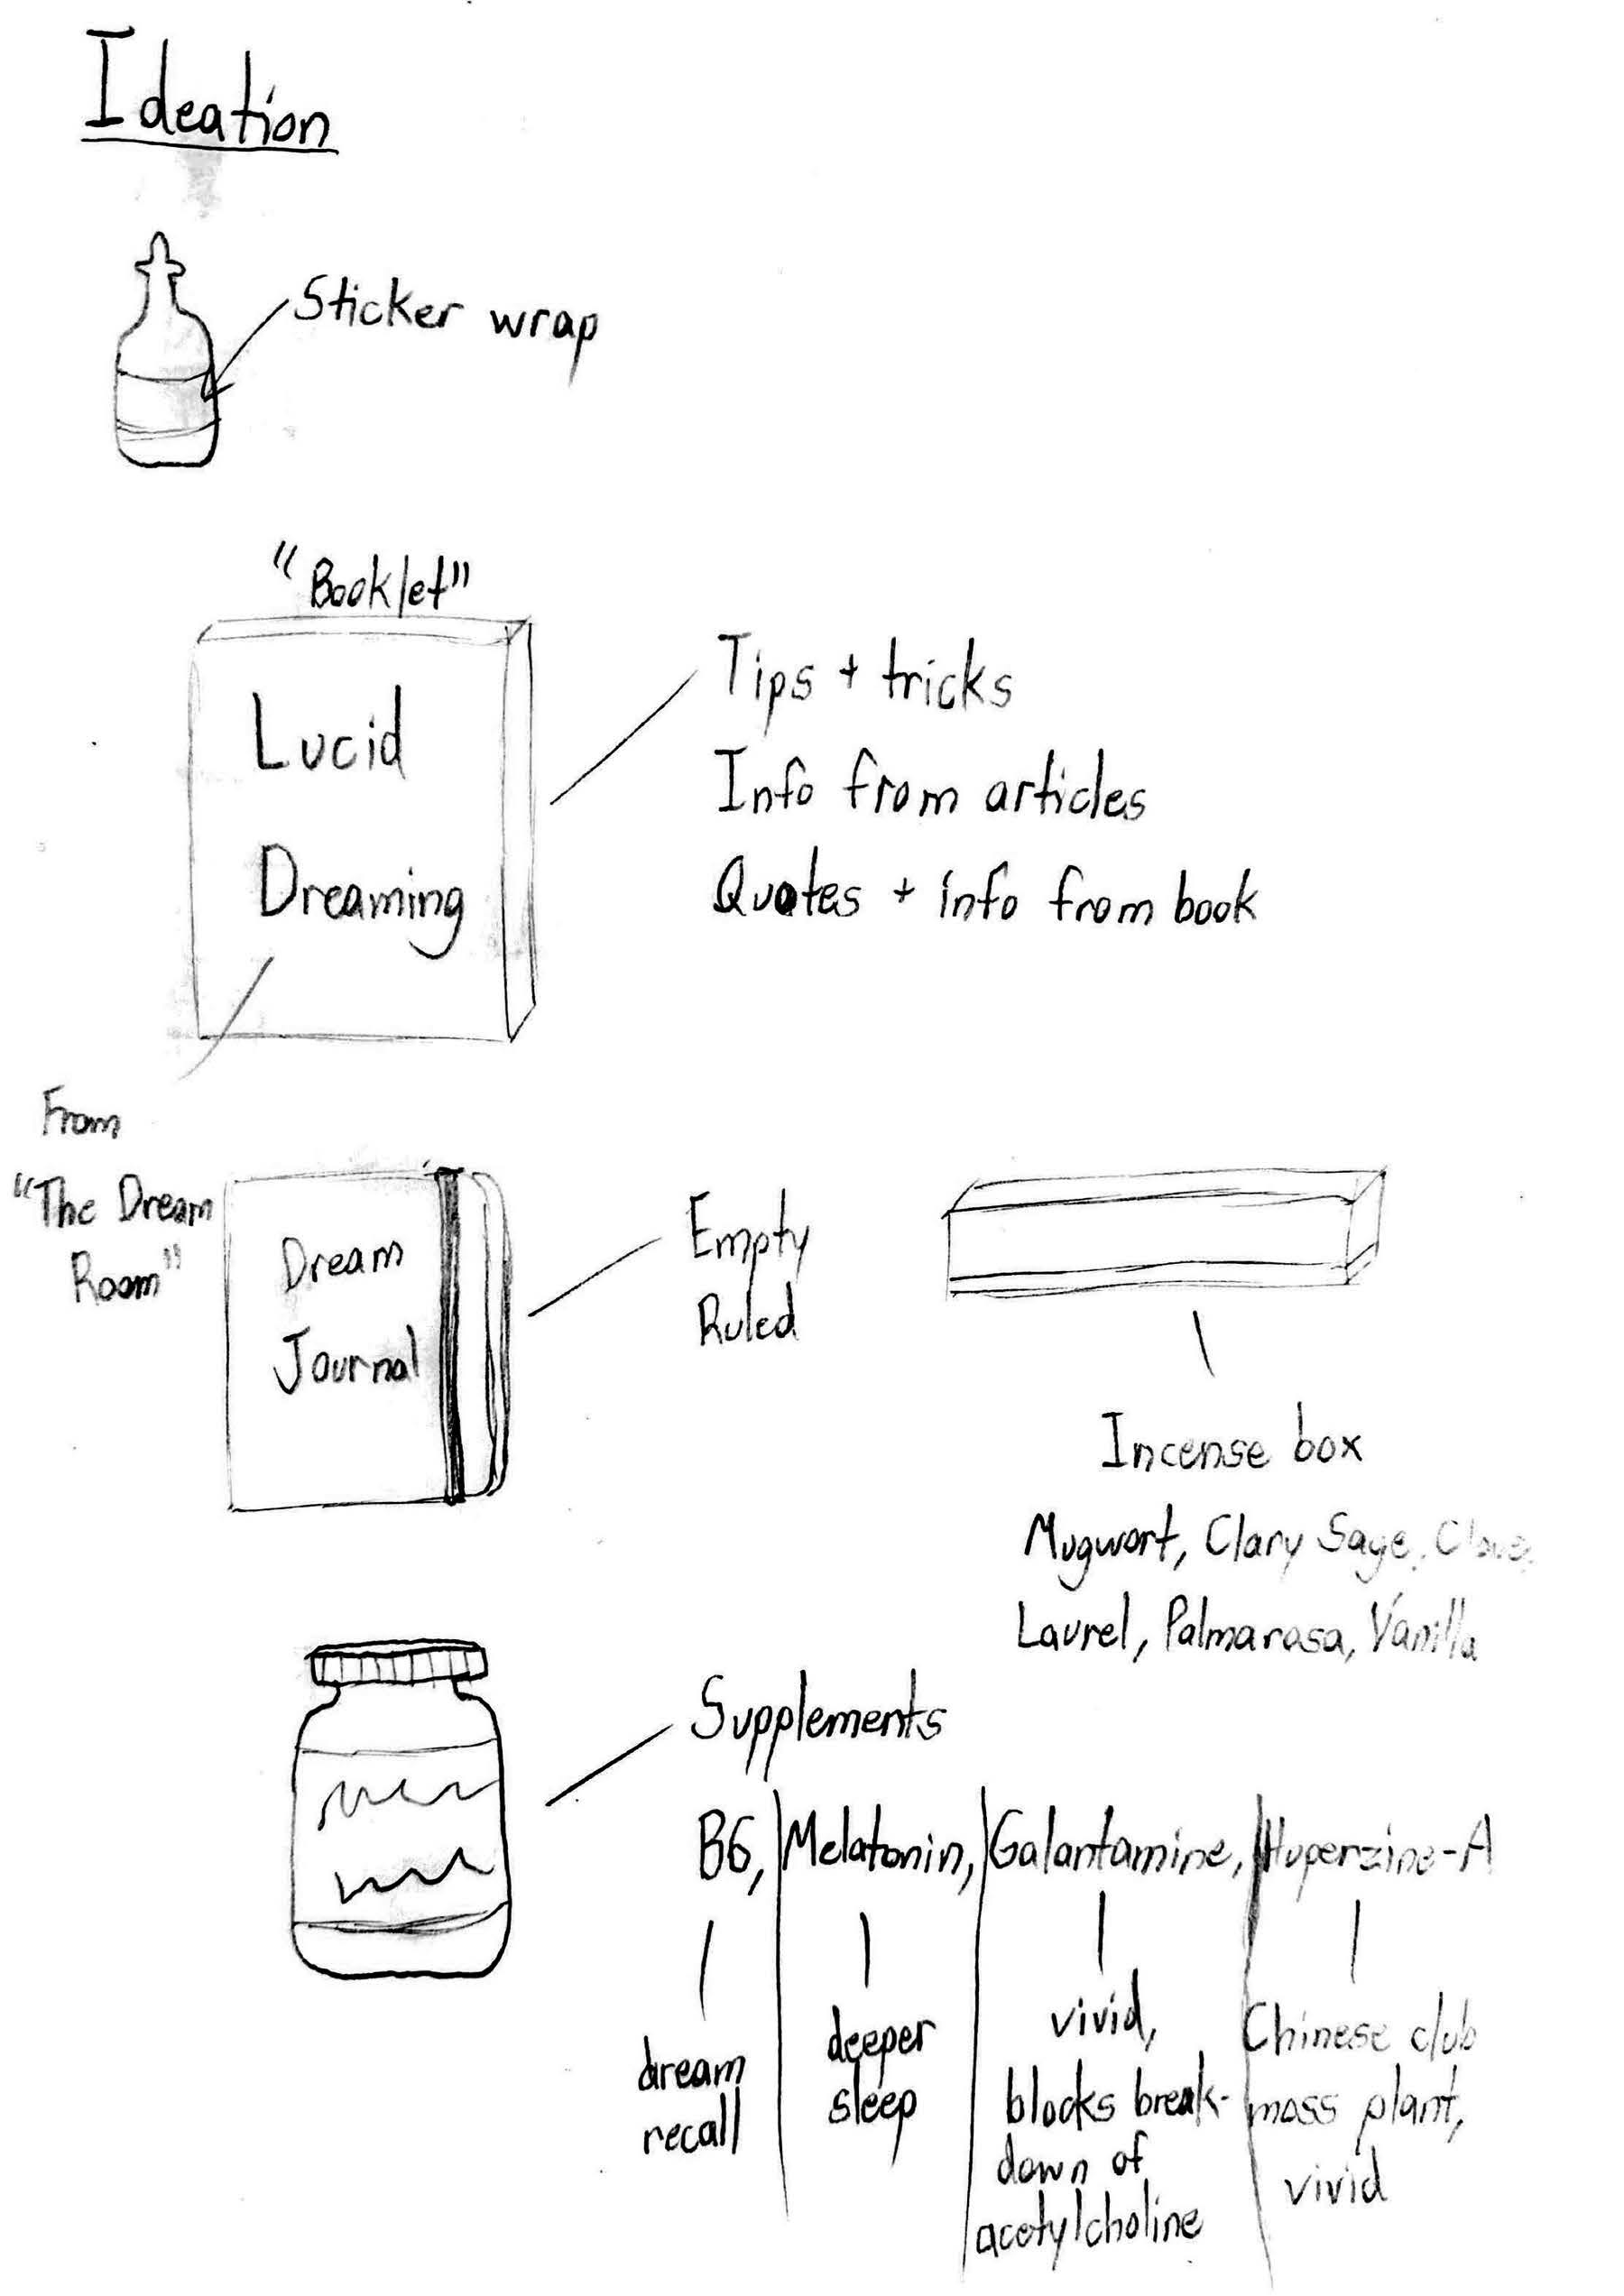 Ideation
Sticker wrap
"Booklet"
Lucid
Dreaming
Tips + tricks
Info from articles
Quotes + info from book
From
"The Dream
Room"
Dream
Journal
Empty
Ruled
Incense box
Mugwort, Clary Sage, Clove,
Laurel, Palmarosa, Vanilla
Supplements
B6, Melatonin, Galantamine, Huperzine-A
dream
recall
deeper
sleep
vivid,
blocks break-
down of
acetylcholine
Chinese club
moss plant,
vivid